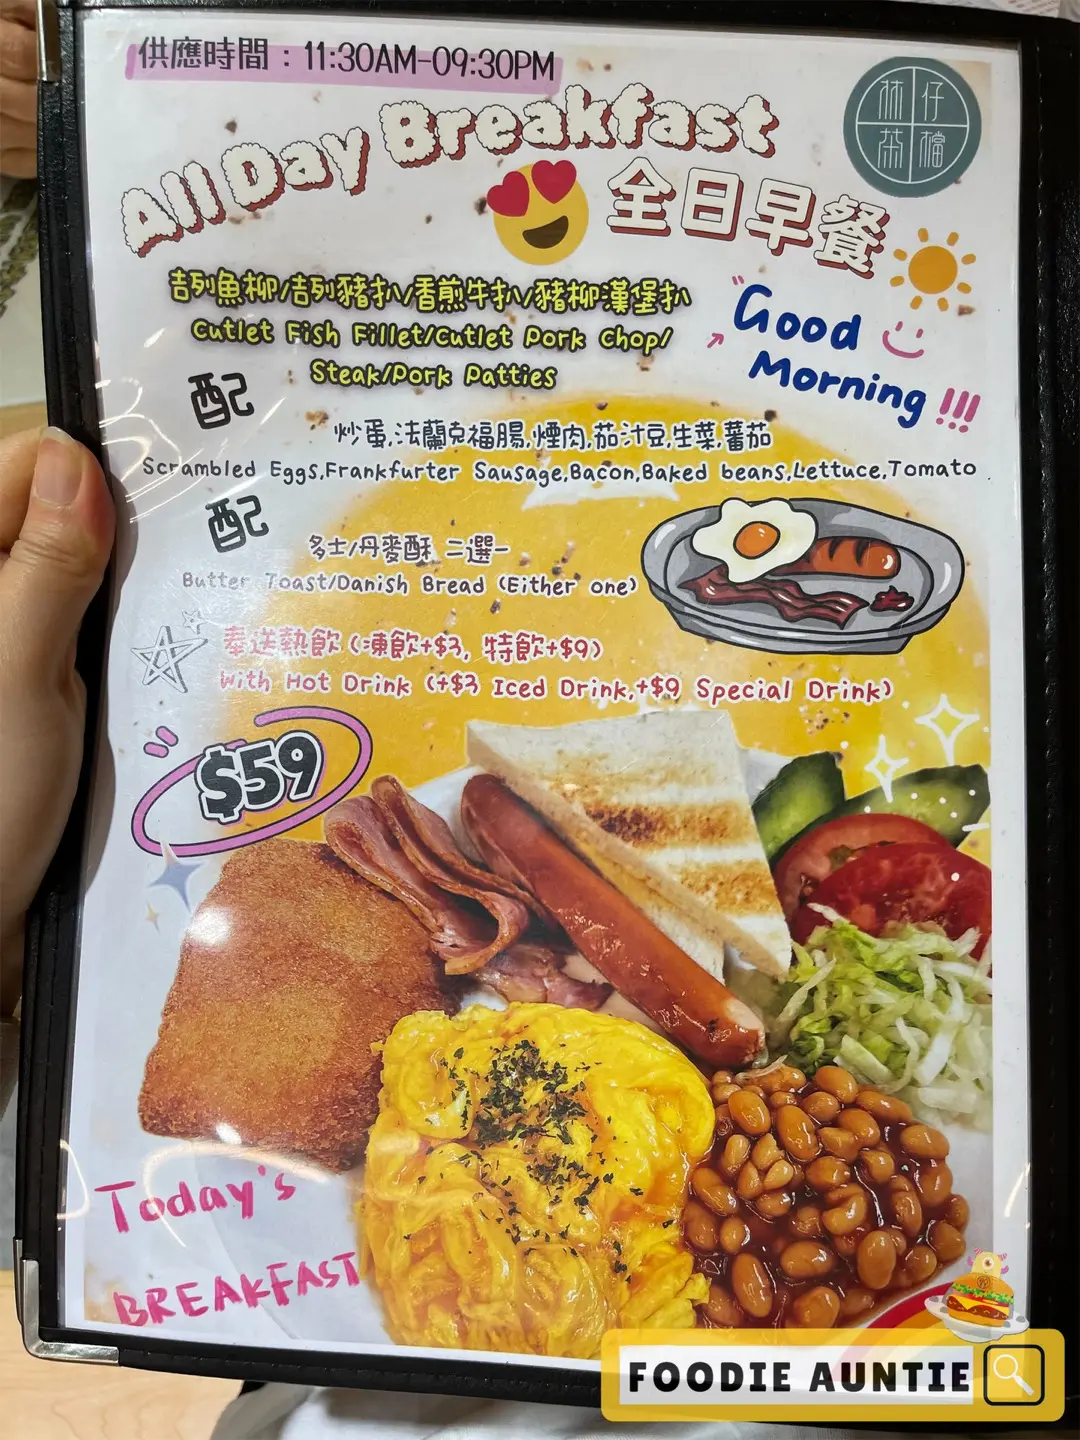 供應時間：11:30AM-09:30PM
All Day Breakfast
林仔
茶檔
全日早餐
吉列魚柳/吉列豬扒/香煎牛扒/豬柳漢堡扒
Cutlet Fish Fillet/Cutlet Pork Chop/
Steak/Pork Patties
"Good
Morning!!!
配
炒蛋,法蘭克福腸,煙肉,茄汁豆,生菜,蕃茄
Scrambled Eggs,Frankfurter Sausage,Bacon,Baked beans,Lettuce,Tomato
配
多士/丹麥酥 二選一
Butter Toast/Danish Bread (Either one)
奉送熱飲 (凍飲+$3, 特飲+$9)
With Hot Drink (+$3 Iced Drink,+$9 Special Drink)
$59
Today's
BREAKFAST
FOODIE AUNTIE